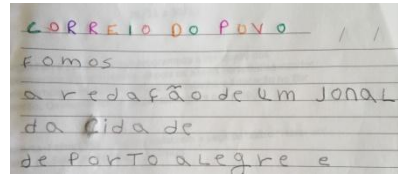 CORREIO DO POVO / /
Fomos
a redação de um JonaL
da Cidade
de PorTo aLegre e